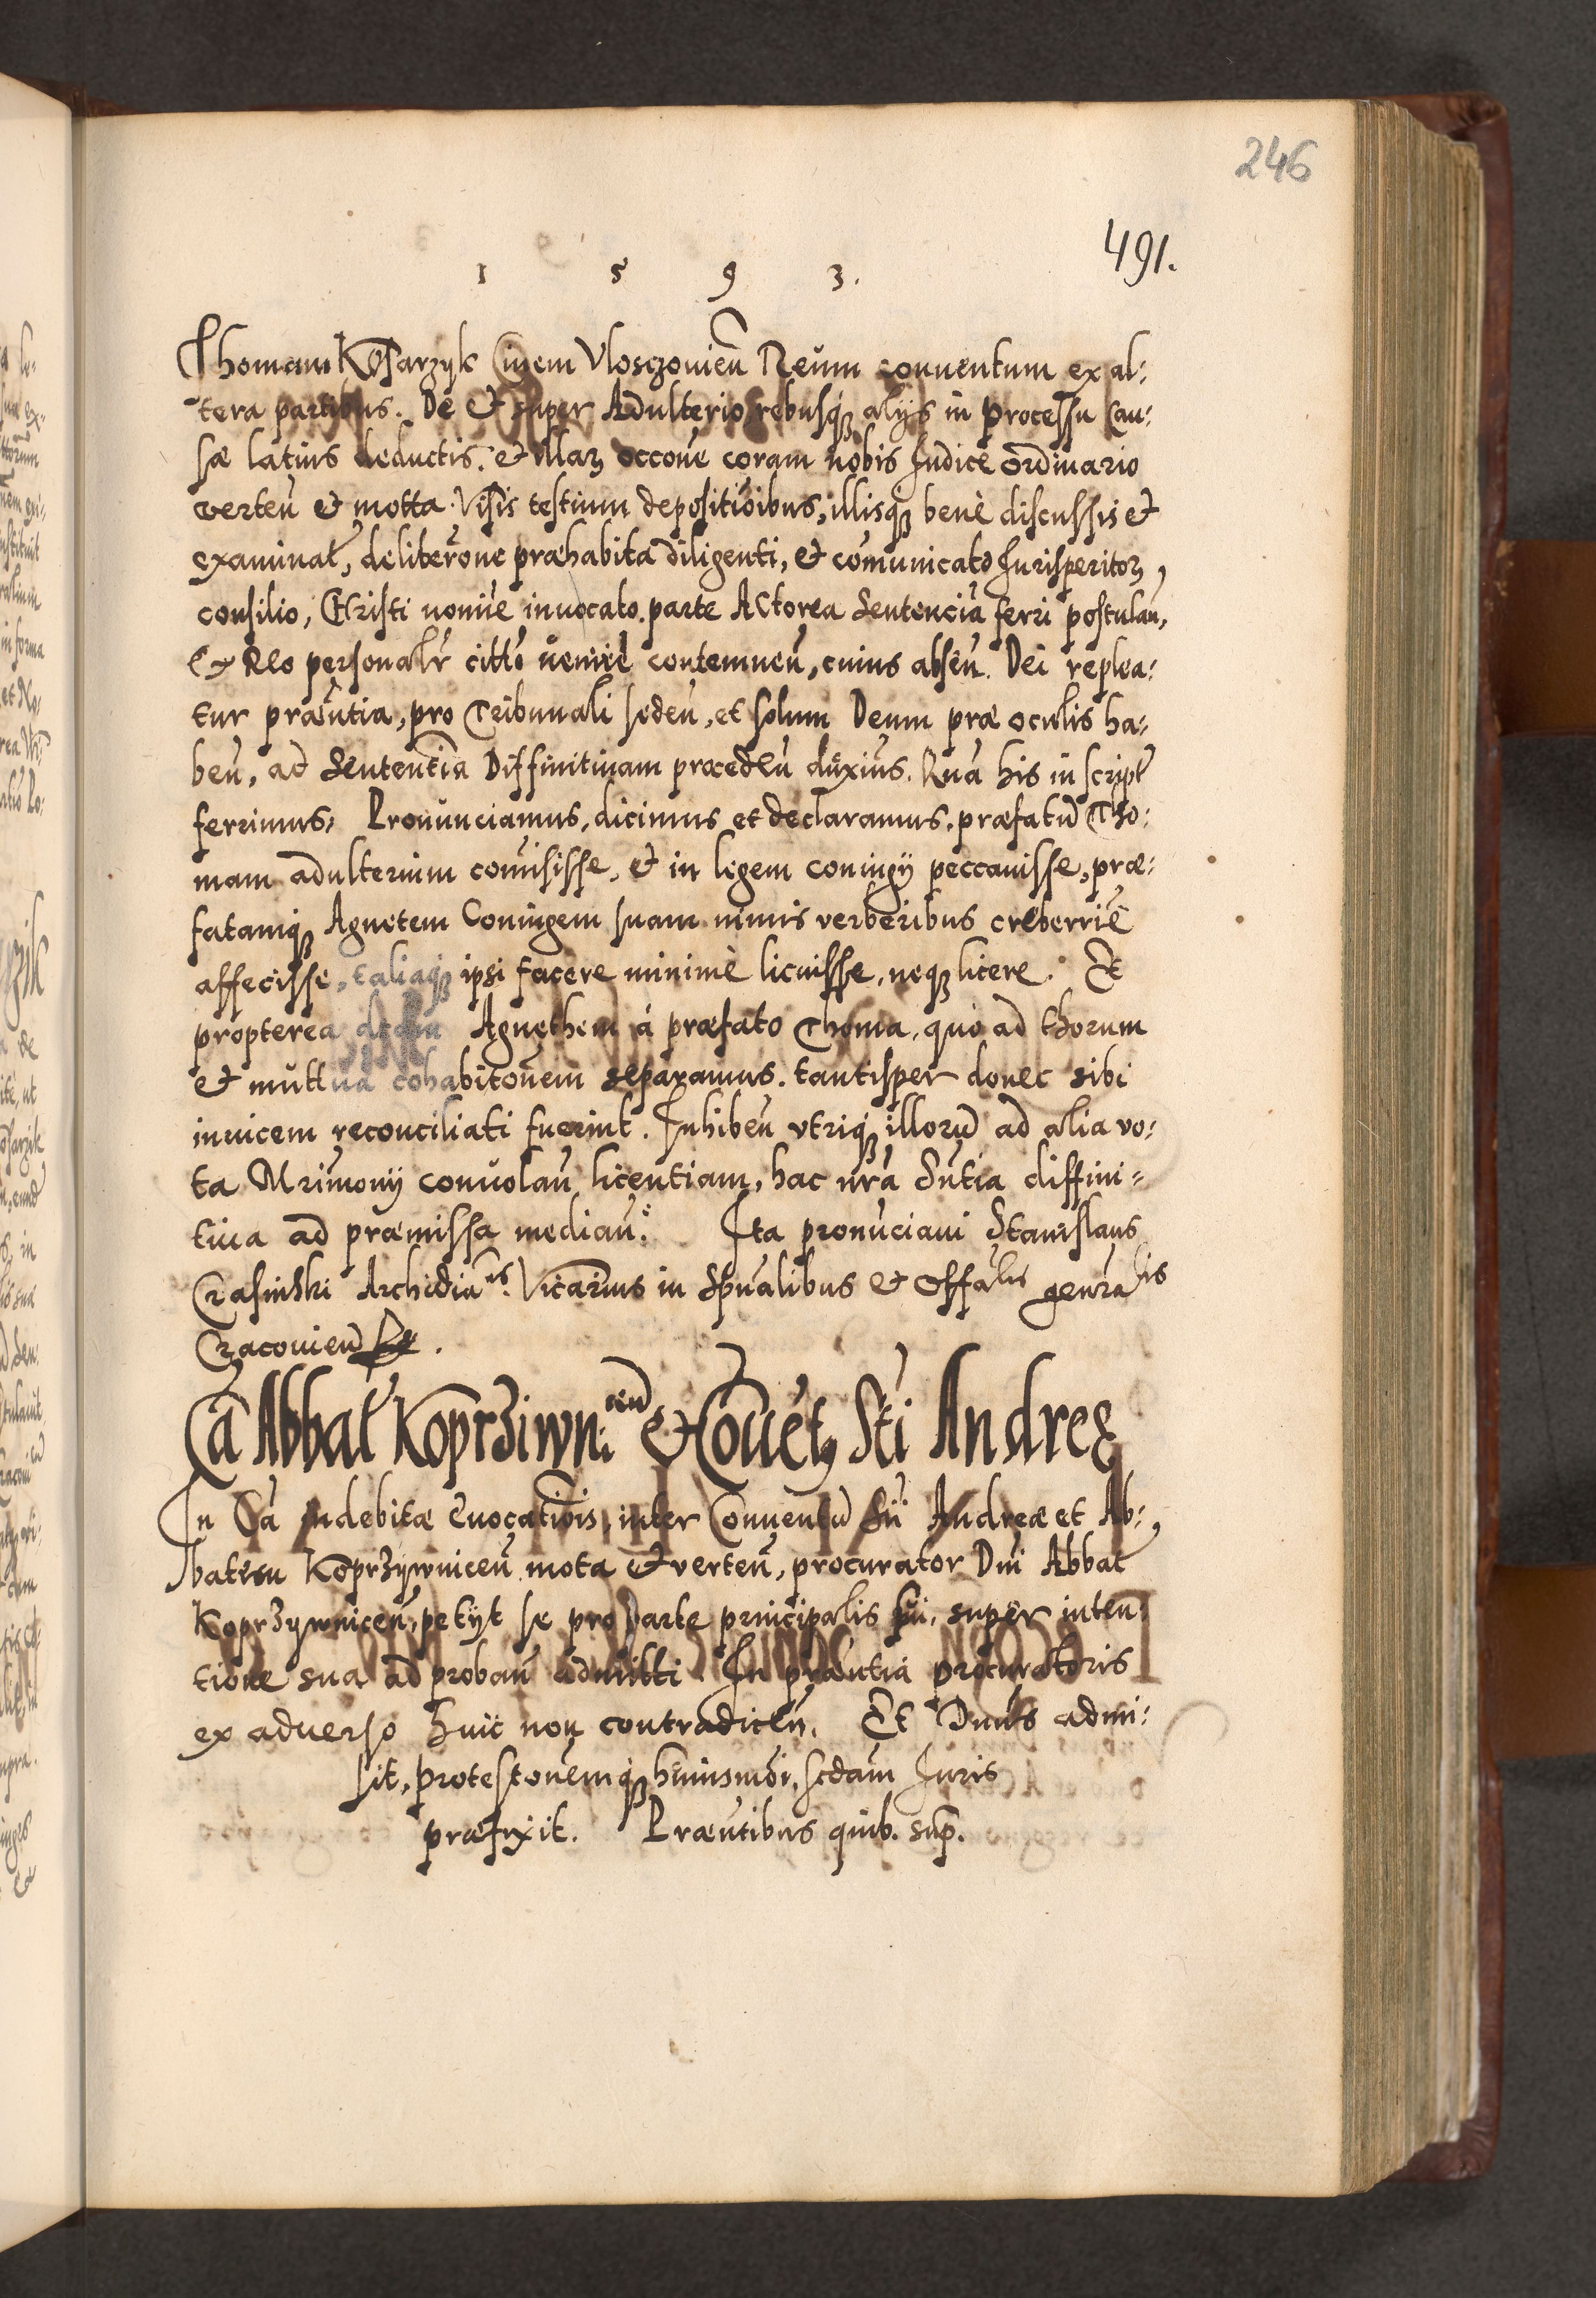 246
491.
1 5 9 3.
Thomam Kosarzyk Civem Vlosczovien̄ Reum conuentum ex al:
tera partibus. De et super Adulterio rebusq̧ alijs in processu Cau:
sæ latius deductis. et illaꝝ occōne coram nobis Judice ordinario
verten̄ et motta. Visis testium depositiōibus, illisq̧ benè discussis et
examinat̄, deliberōne præhabita diligenti, et com̄unicato Jurisperitoꝝ
consilio, Christi nomīe inuocato. parte Actorea Sentenciā ferri postulan̄,
Et Reo personalr̄ citt̄o venire contemnen̄, cuius absen̄. Dei replea:
tur præn̄tia, pro Tribunali seden̄, et solum Deum præ oculis ha:
ben̄, ad Sententiā Diffinitiuam proceden̄ dūximus. Quā his in script̄
ferrimus, Pronunciamus, dicimus et declaramus, præfatū Tho:
mam adulterium com̄isisse, et in legem coniugij peccauisse, præ:
fatamq̧ Agnetem Coniugem suam nimis verberibus creberrimè
affecisse, taliaq̧ ipsi facere minimè licuisse, neq̧ licere. Et
propterea Agnethem à præfato Thoma, quo ad thorum
et muttuā cohabitōnem separamus. tantisper donec sibi
inuicem reconciliati fuerint. Inhiben̄ vtriq̧ illorū ad alia vo:
ta Mrimonij conuolan̄ licentiam, hac nr̄a Sn̄tia diffini=
tiua ad præmissa median̄. Ita pronūciaui Stanislaus
Crasinski Archidia^nus. Vicarius in Spūalibus et Offālis gen̄ralis
Cracouien̄
Cā Abbat̄ Koprziwni^cen̄ et Cōuētꝫ Sti Andreę
In Cā indebitæ Euocatiōis, inter Conuentū Sti Andreæ et Ab:
batem Koprzywnicen̄ mota et verten̄, procurator Dn̄i Abbat̄
Koprzywnicen̄, petijt se pro parte principalis sui, super inten:
tione sua ad proban̄ admitti. In præn̄tia procuratoris
ex aduerso huic non contradicen̄. Et Dn̄us admi:
sit, protestōnemq̧ huiusmōi, scdām Juris
præfixit. Præn̄tibus quib. sup.